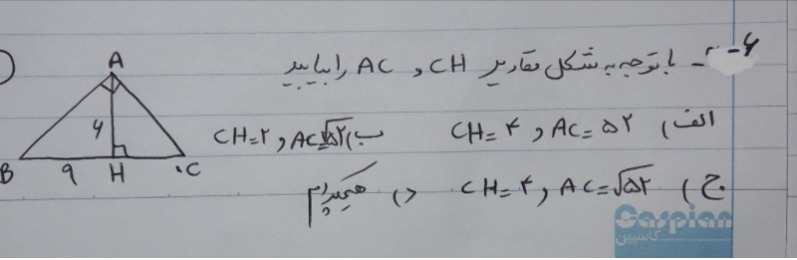 ۶- با توجه به شکل مقادیر CH و AC را بیابید
الف) AC=۵۲ و CH=۴ ب) AC=√۵۲ و CH=۲
ج) AC=√۵۲ و CH=۴ د) هیچکدام
A
۶
B ۹ H C
Caspian
کاسپین